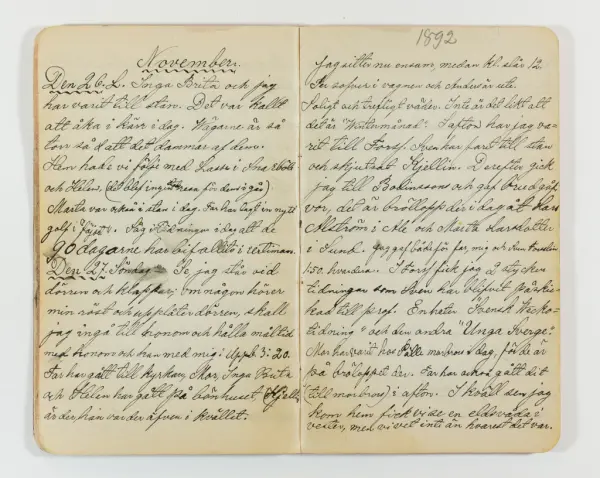 November.
Den 26. L. Inga Brita och jag
har varit till stan. Det var kallt
att åka i kärr i dag. Wägarne är så
torr så att det dammar af dem.
Hem hade vi följe med Lasse i
och Helén, (det blef ingen resa för dem i går)
Marta var också i stan i dag. Far har lagt in nytt
golf i "föjse". Såg i tidningen i dag att de
godagarne har bifallits i
Den 27. Söndag. Se, jag står vid
dörren och klappar; Om någon hörer
min röst och upplåter dörren, skall
jag ingå till honom och hålla måltid
med honom och han med mig. Uppb. 3: 20.
Far har gått till kyrkan, Mor, Inga Brita
och Helén har gått på bönhuset, Kjellin
är der, han var der äfven i kvällst.
1892
Jag sitter nu ensam, medan kl. slår 12.
Per sofver i vagnen och Anders är ute.
Soligt och trefligt väder. Inte är det likt att
det är "Wintermånad". I afton har jag va-
rit till Forss. Sven har fart till stan
och skjutsat Kjellin. Derefter gick
jag till Bolinssons och gaf brudgåf-
vor, det är bröllopp der i dag åt Lars
Alström i Ale och Marta Larsdotter
i Sund. Jag gaf både för far, mig och
1.50. hvardera. I Forss fick jag 2 stycken
tidningar som Sven har blifvit påräk-
nad till prof. En heter "Svensk Wecko-
tidning" och den andra "Unga Sverge."
Mor har varit hos Pålle morbrors i dag, för de är
på bröloppet der. Far har också gått dit
(till morbrors) i afton. I kväll sen jag
kom hem fick vi se en eldsvåda i
vester, men vi vet inte än hvarest det var.